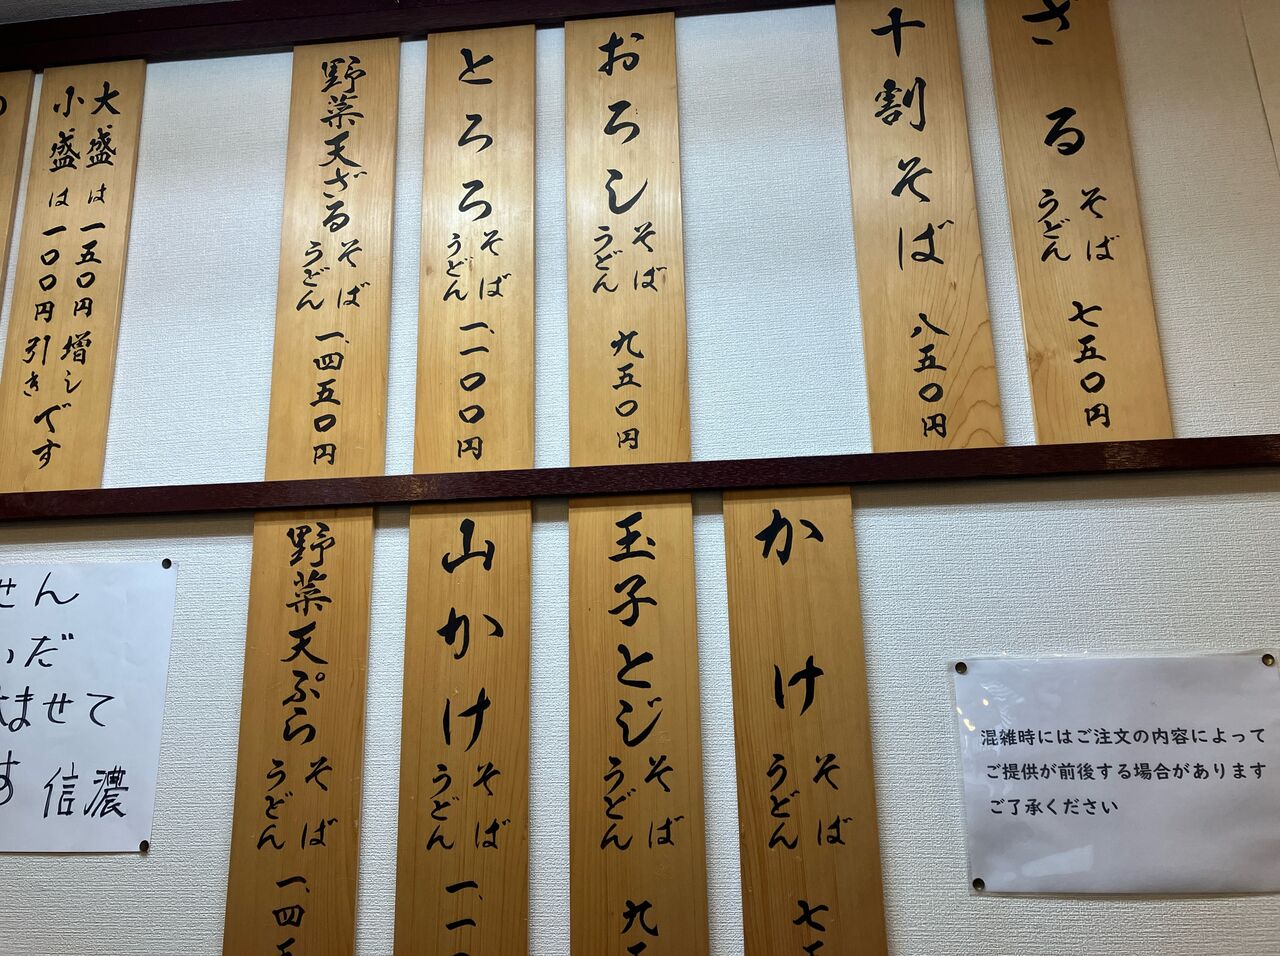 ざる
そば
うどん
七五〇円
十割そば
八五〇円
おろし
そば
うどん
九五〇円
とろろ
そば
うどん
一、一〇〇円
野菜天ざる
そば
うどん
一、四五〇円
大盛は一五〇円増し
小盛は一〇〇円引きです
かけ
そば
うどん
七五
玉子とじ
そば
うどん
九五
山かけ
そば
うどん
一、一〇
野菜天ぷら
そば
うどん
一、四五
せん
いだ
ませて
す 信濃
混雑時にはご注文の内容によって
ご提供が前後する場合があります
ご了承ください